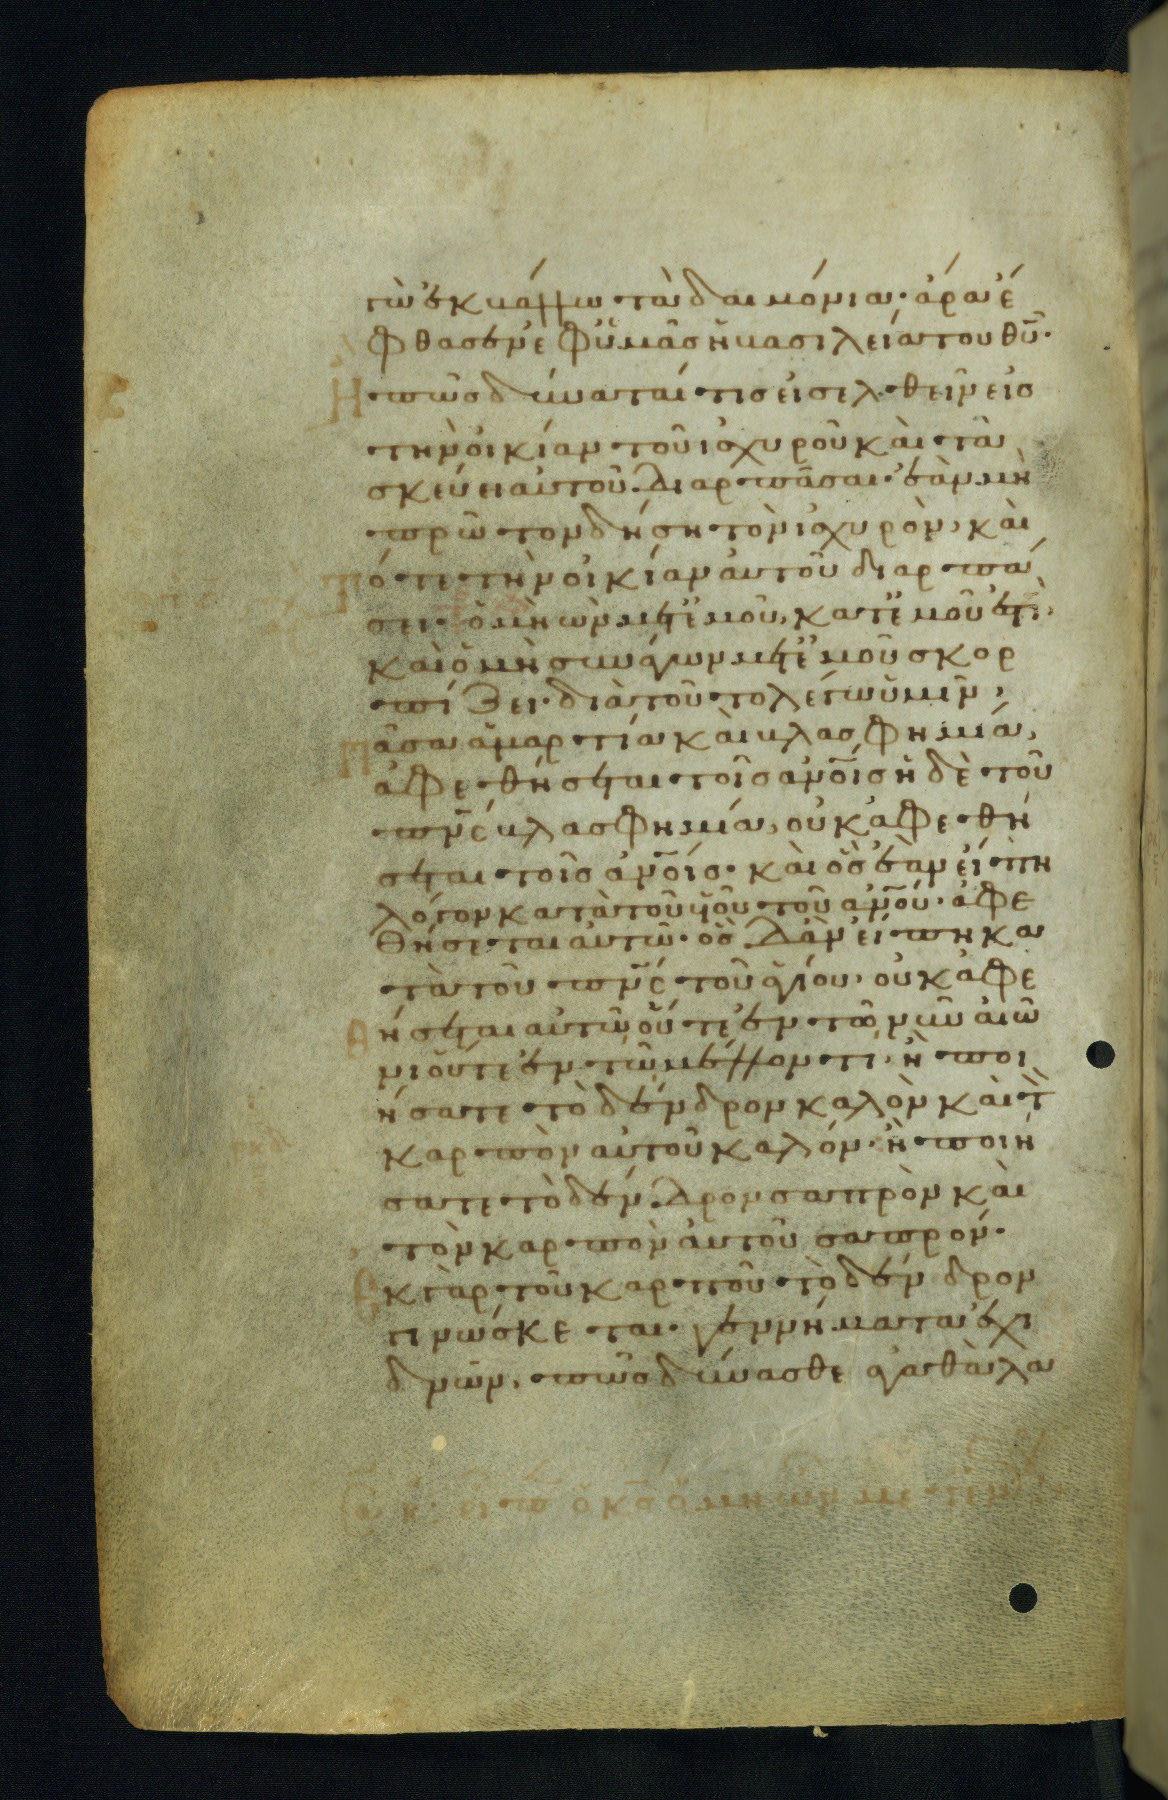 γὼ ἐκβάλλω τὰ δαιμόνια· ἄρα ἔ
φθασεν ἐφ ὑμᾶς ἡ βασιλεία του θῦ·
Ἢ πῶς δύναταί τις εἰσελθεῖν εἰς
τὴν οἰκίαν τοῦ ἰσχυροῦ καὶ τὰ
σκεύει αυτοῦ διαρπᾶσαι· ἐὰν μὴ
πρῶτον δήση τὸν ἰσχυρὸν, καὶ
τότε τὴν οἰκίαν ἀυτοῦ διαρπά
σει· ὁ μὴ ὢν μετ ἐμοῦ, κατ ἐμοῦ ἐστὶ,
καὶ ὁ μὴ συνάγων μετ ἐμοῦ σκορ
πίζει· διὰ τοῦτο λέγω ὑμῖν,
Πᾶσα ἁμαρτία καὶ βλασφημία,
ἀφεθήσεται τοῖς ἀνοῖς ἡ δὲ τοῦ
πνς βλασφημία, οὐκ ἀφεθή
σεται τοῖς ἀνοῖς· καὶ ὃς ἐὰν εἴπη
λόγον κατὰ τοῦ ὑοῦ τοῦ ἀνου· ἀφε
θήσεται αυτῶ· ὃς δ ἀν εἴπη κα
τὰ τοῦ πνς τοῦ ἁγίου· οὐκ ἀφε
θήσεται αυτῶ οὔτε ἐν τῶ νῦν αἰῶ
νι οὔτε ἐν τῶ μέλλοντι· ἢ ποι
ήσατε τὸ δένδρον καλὸν καὶ τὸν
καρπὸν αὐτοῦ καλόν· ἢ ποιή
σατε τὸ δένδρον σαπρὸν καὶ
τὸν καρπὸν ἀυτοῦ σαπρόν·
Ἐκ γὰρ τοῦ καρποῦ τὸ δένδρον
γινώσκεται· γεννήματα ἐχι
δνῶν, πῶς δύνασθε ἀγαθὰ λα